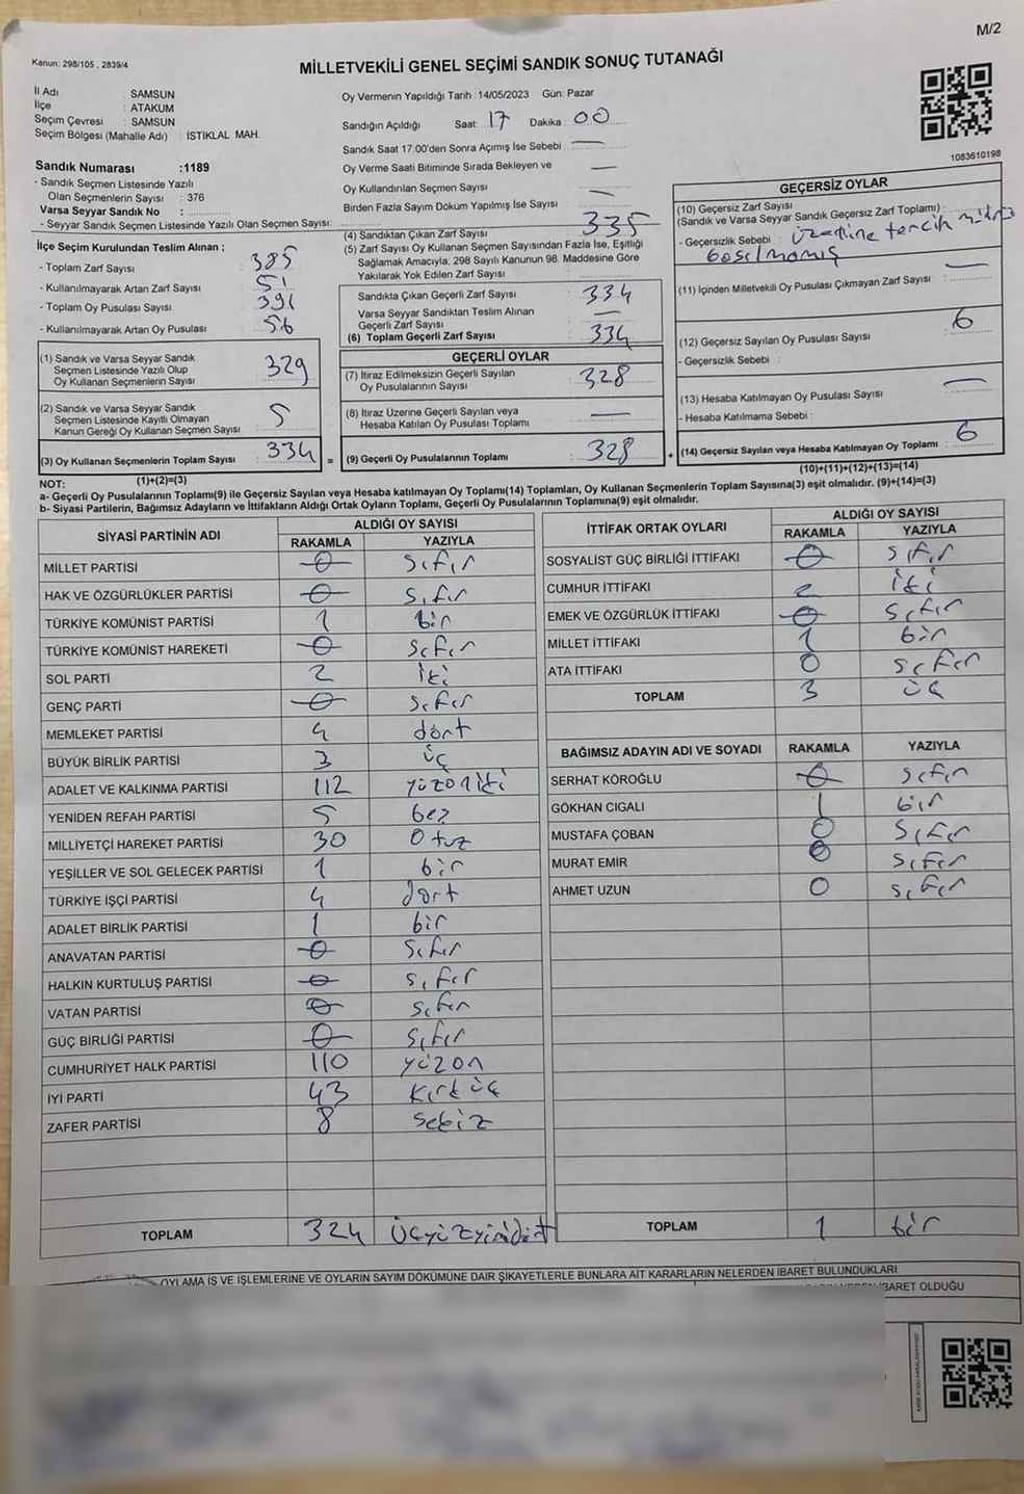 M/2
Kanun: 298/105 , 2839/4
MİLLETVEKİLİ GENEL SEÇİMİ SANDIK SONUÇ TUTANAĞI
İl Adı : SAMSUN
İlçe : ATAKUM
Seçim Çevresi : SAMSUN
Seçim Bölgesi (Mahalle Adı) : İSTİKLAL MAH.
Sandık Numarası :1189
- Sandık Seçmen Listesinde Yazılı
Olan Seçmenlerin Sayısı : 376
Varsa Seyyar Sandık No :
- Seyyar Sandık Seçmen Listesinde Yazılı Olan Seçmen Sayısı:
İlçe Seçim Kurulundan Teslim Alınan ;
- Toplam Zarf Sayısı 385
- Kullanılmayarak Artan Zarf Sayısı 51
- Toplam Oy Pusulası Sayısı 391
- Kullanılmayarak Artan Oy Pusulası 56
(1) Sandık ve Varsa Seyyar Sandık
Seçmen Listesinde Yazılı Olup
Oy Kullanan Seçmenlerin Sayısı 329
(2) Sandık ve Varsa Seyyar Sandık
Seçmen Listesinde Kayıtlı Olmayan
Kanun Gereği Oy Kullanan Seçmen Sayısı 5
(3) Oy Kullanan Seçmenlerin Toplam Sayısı 334 =
(1)+(2)=(3)
Oy Vermenin Yapıldığı Tarih :14/05/2023 Gün: Pazar
Sandığın Açıldığı Saat: 17 Dakika: 00
Sandık Saat 17:00'den Sonra Açılmış İse Sebebi : —
Oy Verme Saati Bitiminde Sırada Bekleyen ve —
Oy Kullandırılan Seçmen Sayısı
Birden Fazla Sayım Döküm Yapılmış İse Sayısı —
(4) Sandıktan Çıkan Zarf Sayısı 335
(5) Zarf Sayısı Oy Kullanan Seçmen Sayısından Fazla İse, Eşitliği
Sağlamak Amacıyla, 298 Sayılı Kanunun 98. Maddesine Göre
Yakılarak Yok Edilen Zarf Sayısı
Sandıkta Çıkan Geçerli Zarf Sayısı 334
Varsa Seyyar Sandıktan Teslim Alınan
Geçerli Zarf Sayısı —
(6) Toplam Geçerli Zarf Sayısı 334
GEÇERLİ OYLAR
(7) İtiraz Edilmeksizin Geçerli Sayılan
Oy Pusulalarının Sayısı 328
(8) İtiraz Üzerine Geçerli Sayılan veya
Hesaba Katılan Oy Pusulası Toplamı —
(9) Geçerli Oy Pusulalarının Toplamı 328 +
1083610198
GEÇERSİZ OYLAR
(10) Geçersiz Zarf Sayısı
(Sandık ve Varsa Seyyar Sandık Geçersiz Zarf Toplamı) :
- Geçersizlik Sebebi : üzerine tercih mührü
basılmamış
(11) İçinden Milletvekili Oy Pusulası Çıkmayan Zarf Sayısı : —
(12) Geçersiz Sayılan Oy Pusulası Sayısı 6
- Geçersizlik Sebebi :
(13) Hesaba Katılmayan Oy Pusulası Sayısı —
- Hesaba Katılmama Sebebi :
(14) Geçersiz Sayılan veya Hesaba Katılmayan Oy Toplamı 6
(10)+(11)+(12)+(13)=(14)
NOT:
a- Geçerli Oy Pusulalarının Toplamı(9) ile Geçersiz Sayılan veya Hesaba katılmayan Oy Toplamı(14) Toplamları, Oy Kullanan Seçmenlerin Toplam Sayısına(3) eşit olmalıdır. (9)+(14)=(3)
b- Siyasi Partilerin, Bağımsız Adayların ve İttifakların Aldığı Ortak Oyların Toplamı, Geçerli Oy Pusulalarının Toplamına(9) eşit olmalıdır.
SİYASİ PARTİNİN ADI ALDIĞI OY SAYISI
RAKAMLA YAZIYLA
MİLLET PARTİSİ 0 sıfır
HAK VE ÖZGÜRLÜKLER PARTİSİ 0 sıfır
TÜRKİYE KOMÜNİST PARTİSİ 1 bir
TÜRKİYE KOMÜNİST HAREKETİ 0 sıfır
SOL PARTİ 2 iki
GENÇ PARTİ 0 sıfır
MEMLEKET PARTİSİ 4 dört
BÜYÜK BİRLİK PARTİSİ 3 üç
ADALET VE KALKINMA PARTİSİ 112 yüzoniki
YENİDEN REFAH PARTİSİ 5 beş
MİLLİYETÇİ HAREKET PARTİSİ 30 Otuz
YEŞİLLER VE SOL GELECEK PARTİSİ 1 bir
TÜRKİYE İŞÇİ PARTİSİ 4 dört
ADALET BİRLİK PARTİSİ 1 bir
ANAVATAN PARTİSİ 0 sıfır
HALKIN KURTULUŞ PARTİSİ 0 sıfır
VATAN PARTİSİ 0 sıfır
GÜÇ BİRLİĞİ PARTİSİ 0 sıfır
CUMHURİYET HALK PARTİSİ 110 yüzon
İYİ PARTİ 43 Kırküç
ZAFER PARTİSİ 8 sekiz
TOPLAM 324 üçyüzyirmidört
İTTİFAK ORTAK OYLARI ALDIĞI OY SAYISI
RAKAMLA YAZIYLA
SOSYALİST GÜÇ BİRLİĞİ İTTİFAKI 0 sıfır
CUMHUR İTTİFAKI 2 iki
EMEK VE ÖZGÜRLÜK İTTİFAKI 0 sıfır
MİLLET İTTİFAKI 1 bir
ATA İTTİFAKI 0 sıfır
TOPLAM 3 üç
BAĞIMSIZ ADAYIN ADI VE SOYADI RAKAMLA YAZIYLA
SERHAT KÖROĞLU 0 sıfır
GÖKHAN CIGALI 1 bir
MUSTAFA ÇOBAN 0 sıfır
MURAT EMİR 0 sıfır
AHMET UZUN 0 sıfır
TOPLAM 1 bir
OYLAMA İŞ VE İŞLEMLERİNE VE OYLARIN SAYIM DÖKÜMÜNE DAİR ŞİKAYETLERLE BUNLARA AİT KARARLARIN NELERDEN İBARET BULUNDUKLARI
İBARET OLDUĞU